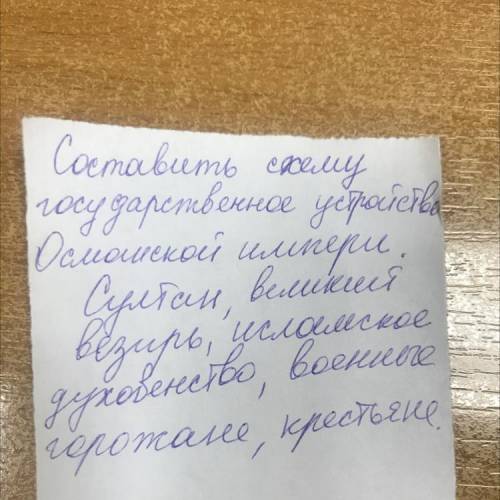 Составить схему
государственное устройство
Османской импери.
Султан, великий
везирь, исламское
духовенство, военные
горожане, крестьяне.